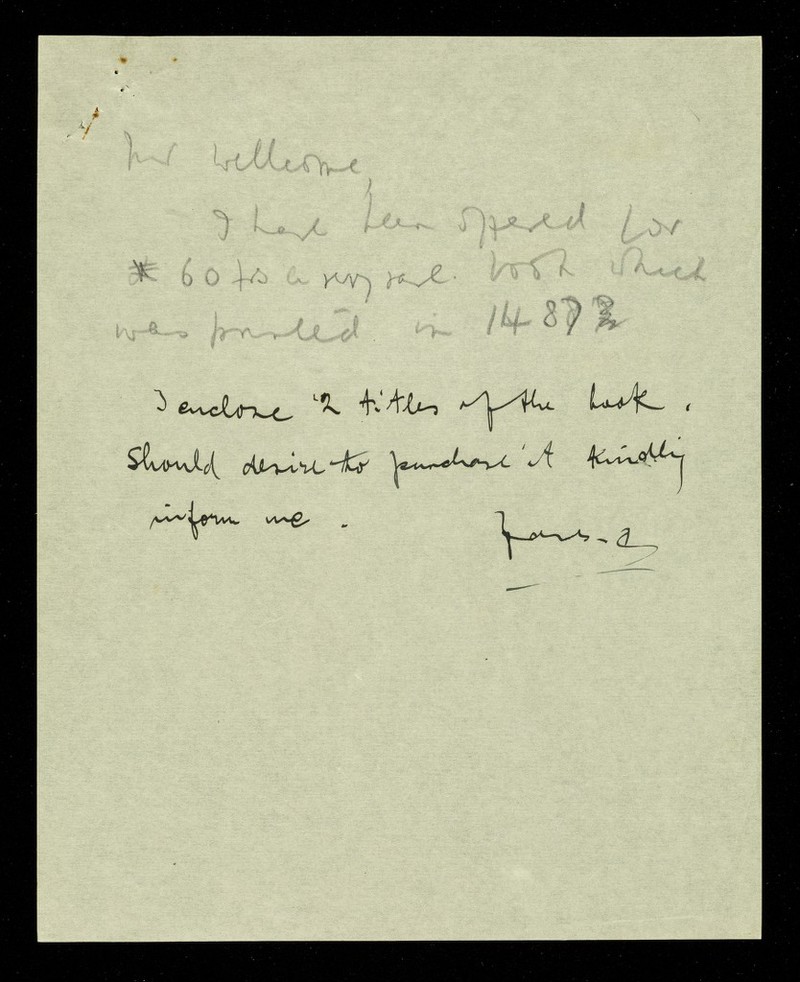 Mr Wellcome,
I have been offered for
60 frs a very rare book which
was printed in 1487
I enclose 2 titles of the book.
Should desire to purchase it kindly
inform me.